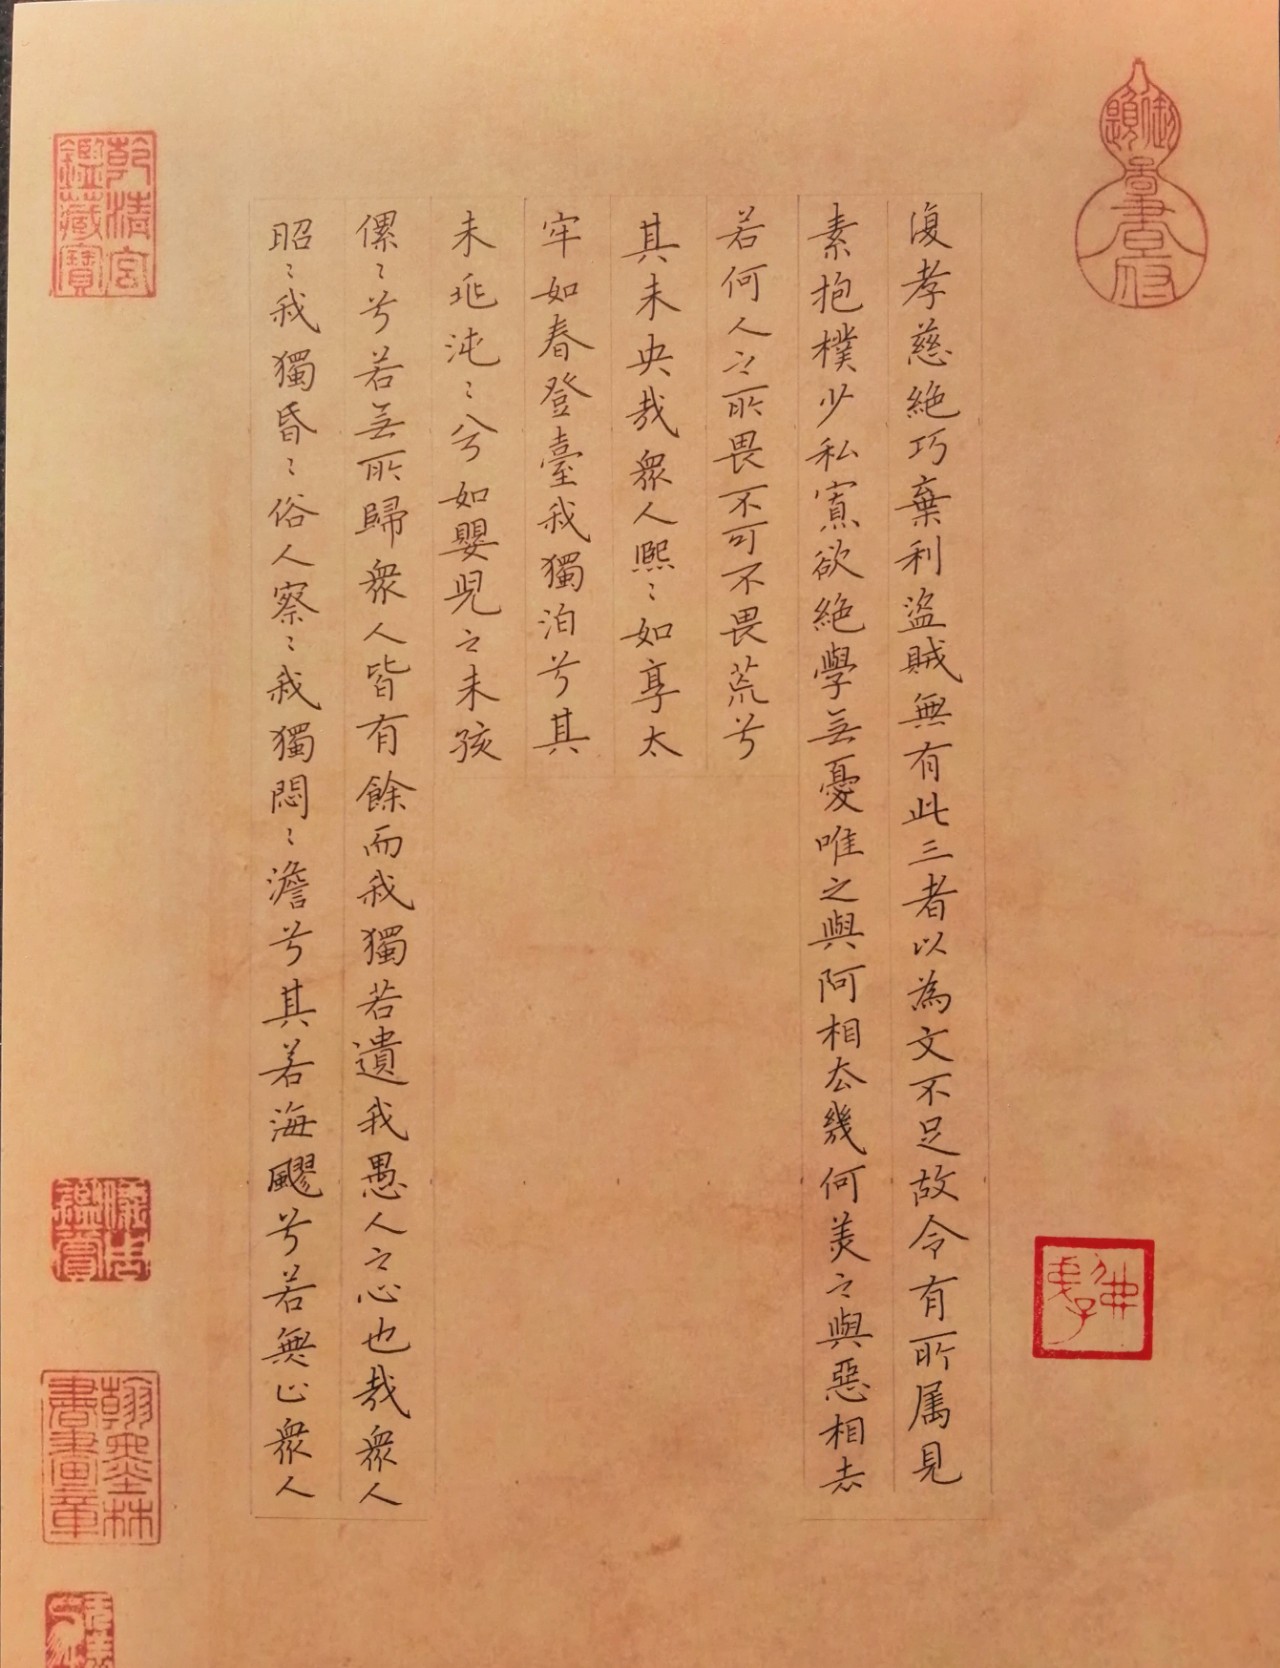 復孝慈絶巧棄利盜賊無有此三者以為文不足故令有所属見
素抱樸少私寡欲絶學無憂唯之與阿相去幾何美之與惡相去
若何人之所畏不可不畏荒兮
其未央哉衆人熙〻如享太
牢如春登臺我獨泊兮其
未兆沌〻兮如嬰兒之未孩
儽〻兮若無所歸衆人皆有餘而我獨若遺我愚人之心也哉衆人
昭〻我獨昏〻俗人察〻我獨悶〻澹兮其若海飂兮若無止衆人
御題
書府
乾清宮
鑑藏寶
鑑賞
翰墨林
書畫章